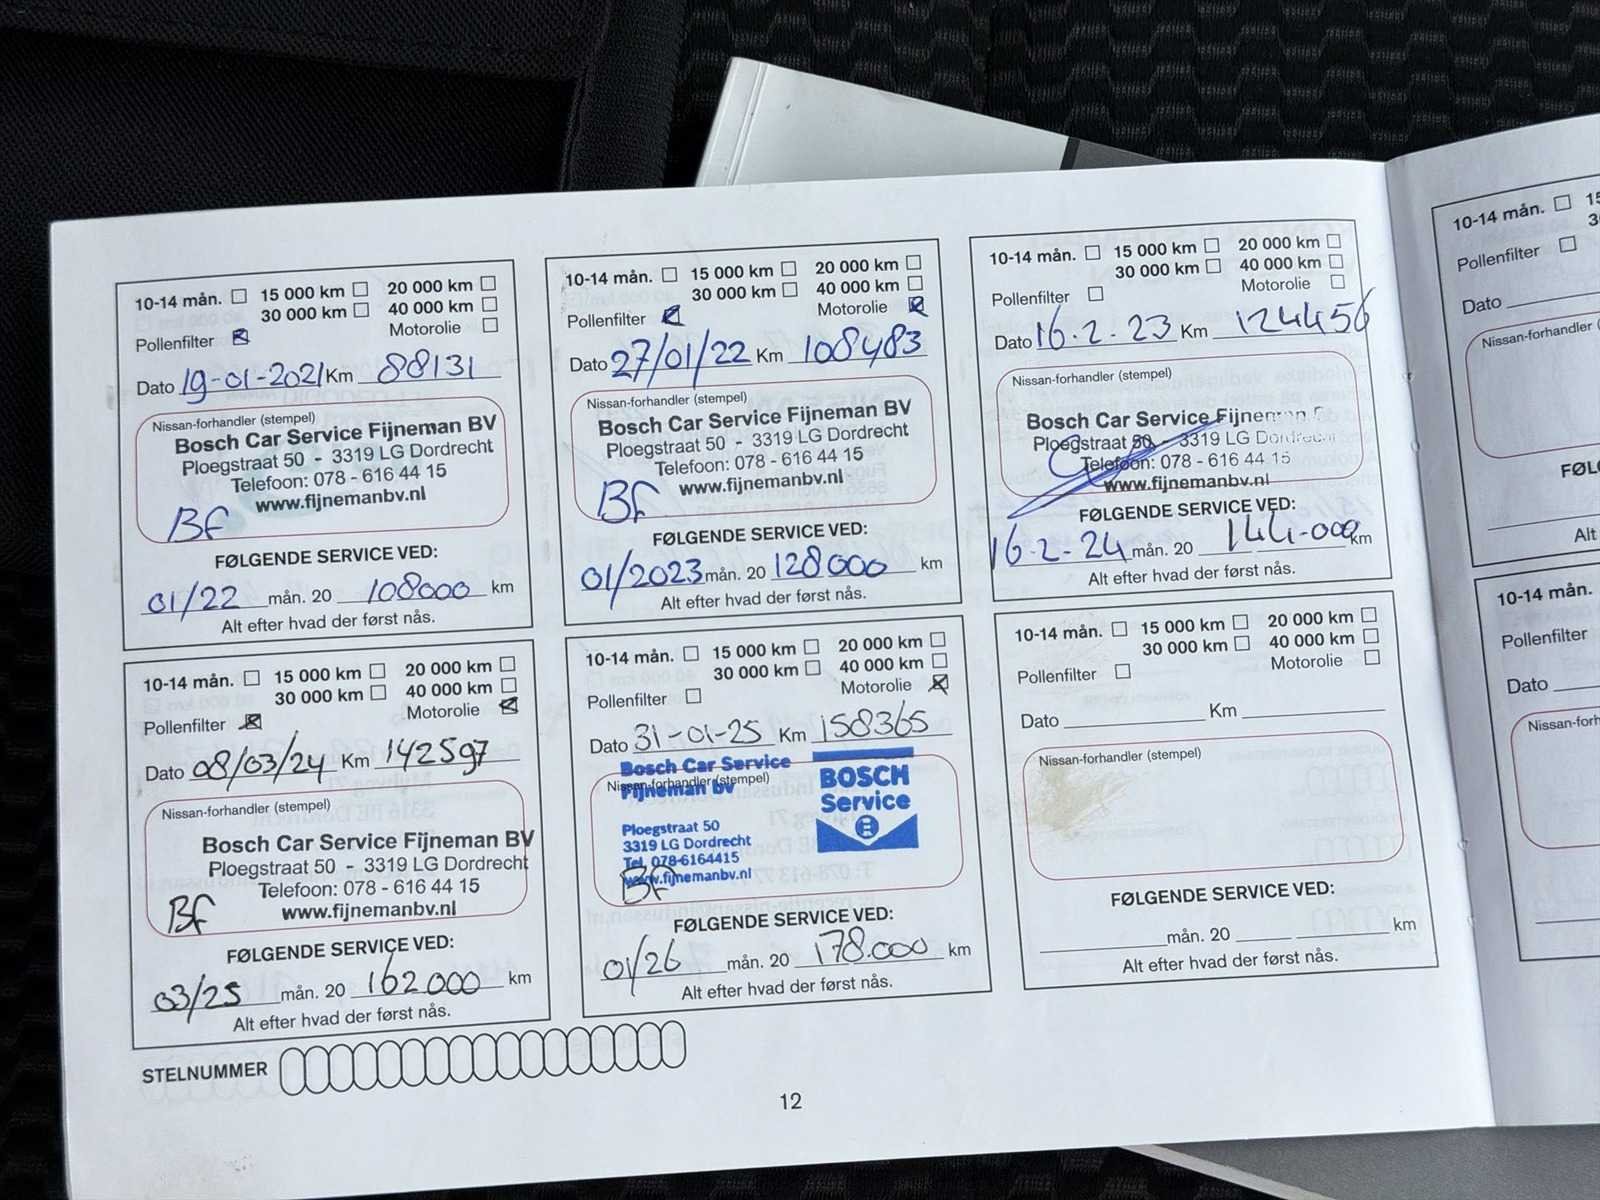 10-14 mån. 15 000 km 20 000 km
30 000 km 40 000 km
Pollenfilter Motorolie
Dato 19-01-2021 Km 88131
Nissan-forhandler (stempel)
Bosch Car Service Fijneman BV
Ploegstraat 50 - 3319 LG Dordrecht
Telefoon: 078 - 616 44 15
www.fijnemanbv.nl
BF
FØLGENDE SERVICE VED:
01/22 mån. 20 108000 km
Alt efter hvad der først nås.
10-14 mån. 15 000 km 20 000 km
30 000 km 40 000 km
Pollenfilter Motorolie
Dato 27/01/22 Km 108483
Nissan-forhandler (stempel)
Bosch Car Service Fijneman BV
Ploegstraat 50 - 3319 LG Dordrecht
Telefoon: 078 - 616 44 15
www.fijnemanbv.nl
BF
FØLGENDE SERVICE VED:
01/2023 mån. 20 128000 km
Alt efter hvad der først nås.
10-14 mån. 15 000 km 20 000 km
30 000 km 40 000 km
Pollenfilter Motorolie
Dato 16-2-23 Km 124456
Nissan-forhandler (stempel)
Bosch Car Service Fijneman
Ploegstraat 50 - 3319 LG Dordrecht
Telefoon: 078 - 616 44 15
www.fijnemanbv.nl
FØLGENDE SERVICE VED:
16-2-24 mån. 20 144-000 km
Alt efter hvad der først nås.
10-14 mån. 15 000 km 20 000 km
30 000 km 40 000 km
Pollenfilter Motorolie
Dato 08/03/24 Km 142597
Nissan-forhandler (stempel)
Bosch Car Service Fijneman BV
Ploegstraat 50 - 3319 LG Dordrecht
Telefoon: 078 - 616 44 15
www.fijnemanbv.nl
BF
FØLGENDE SERVICE VED:
03/25 mån. 20 162000 km
Alt efter hvad der først nås.
10-14 mån. 15 000 km 20 000 km
30 000 km 40 000 km
Pollenfilter Motorolie
Dato 31-01-25 Km 158365
Nissan-forhandler (stempel)
Bosch Car Service
Fijneman bv
Ploegstraat 50
3319 LG Dordrecht
Tel. 078-6164415
www.fijnemanbv.nl
BOSCH
Service
BF
FØLGENDE SERVICE VED:
01/26 mån. 20 178.000 km
Alt efter hvad der først nås.
10-14 mån. 15 000 km 20 000 km
30 000 km 40 000 km
Pollenfilter Motorolie
Dato Km
Nissan-forhandler (stempel)
FØLGENDE SERVICE VED:
mån. 20 km
Alt efter hvad der først nås.
STELNUMMER
12
10-14 mån.
Pollenfilter
Dato
Nissan-forhandler
Alt
10-14 mån.
Pollenfilter
Dato